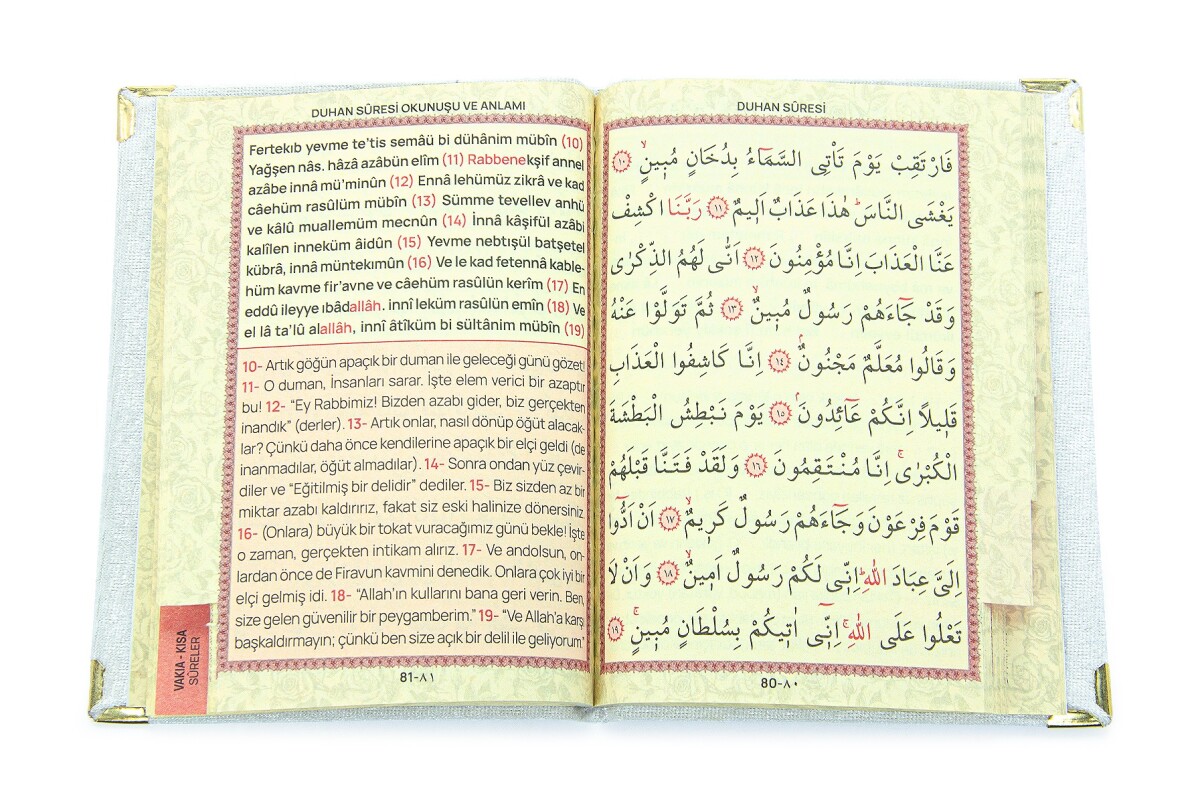 DUHAN SÛRESİ OKUNUŞU VE ANLAMI
Fertekıb yevme te’tis semâü bi dühânim mübîn (10)
Yağşen nâs. hâzâ azâbün elîm (11) Rabbenekşif annel
azâbe innâ mü’minûn (12) Ennâ lehümüz zikrâ ve kad
câehüm rasûlüm mübîn (13) Sümme tevellev anhü
ve kâlû muallemüm mecnûn (14) İnnâ kâşifül azâbi
kalîlen inneküm âidûn (15) Yevme nebtışül batşetel
kübrâ, innâ müntekımûn (16) Ve le kad fetennâ kable-
hüm kavme fir’avne ve câehüm rasûlün kerîm (17) En
eddû ileyye ıbâdallâh. innî leküm rasûlün emîn (18) Ve
el lâ ta’lû alallâh, innî âtîküm bi sültânim mübîn (19)
10- Artık göğün apaçık bir duman ile geleceği günü gözet!
11- O duman, İnsanları sarar. İşte elem verici bir azaptır
bu! 12- “Ey Rabbimiz! Bizden azabı gider, biz gerçekten
inandık” (derler). 13- Artık onlar, nasıl dönüp öğüt alacak-
lar? Çünkü daha önce kendilerine apaçık bir elçi geldi (de
inanmadılar, öğüt almadılar). 14- Sonra ondan yüz çevir-
diler ve “Eğitilmiş bir delidir” dediler. 15- Biz sizden az bir
miktar azabı kaldırırız, fakat siz eski halinize dönersiniz.
16- (Onlara) büyük bir tokat vuracağımız günü bekle! İşte
o zaman, gerçekten intikam alırız. 17- Ve andolsun, on-
lardan önce de Firavun kavmini denedik. Onlara çok iyi bir
elçi gelmiş idi. 18- “Allah’ın kullarını bana geri verin. Ben,
size gelen güvenilir bir peygamberim.” 19- “Ve Allah’a karşı
başkaldırmayın; çünkü ben size açık bir delil ile geliyorum”
81-٨١
VAKIA - KISA
SÛRELER
DUHAN SÛRESİ
فَارْتَقِبْ يَوْمَ تَأْتِي السَّمَٓاءُ بِدُخَانٍ مُب۪ينٍۙ ﴿١٠﴾
يَغْشَى النَّاسَۜ هٰذَا عَذَابٌ اَل۪يمٌ ﴿١١﴾ رَبَّنَا اكْشِفْ
عَنَّا الْعَذَابَ اِنَّا مُؤْمِنُونَ ﴿١٢﴾ اَنّٰى لَهُمُ الذِّكْرٰى
وَقَدْ جَٓاءَهُمْ رَسُولٌ مُب۪ينٌۙ ﴿١٣﴾ ثُمَّ تَوَلَّوْا عَنْهُ
وَقَالُوا مُعَلَّمٌ مَجْنُونٌۢ ﴿١٤﴾ اِنَّا كَاشِفُوا الْعَذَابِ
قَل۪يلاً اِنَّكُمْ عَٓائِدُونَۢ ﴿١٥﴾ يَوْمَ نَبْطِشُ الْبَطْشَةَ
الْكُبْرٰىۚ اِنَّا مُنْتَقِمُونَ ﴿١٦﴾ وَلَقَدْ فَتَنَّا قَبْلَهُمْ
قَوْمَ فِرْعَوْنَ وَجَٓاءَهُمْ رَسُولٌ كَر۪يمٌۙ ﴿١٧﴾ اَنْ اَدُّٓوا
اِلَيَّ عِبَادَ اللّٰهِۜ اِنّ۪ي لَكُمْ رَسُولٌ اَم۪ينٌۙ ﴿١٨﴾ وَاَنْ لَا
تَعْلُوا عَلَى اللّٰهِۚ اِنّ۪ٓي اٰت۪يكُمْ بِسُلْطَانٍ مُب۪ينٍۚ ﴿١٩﴾
80-٨٠